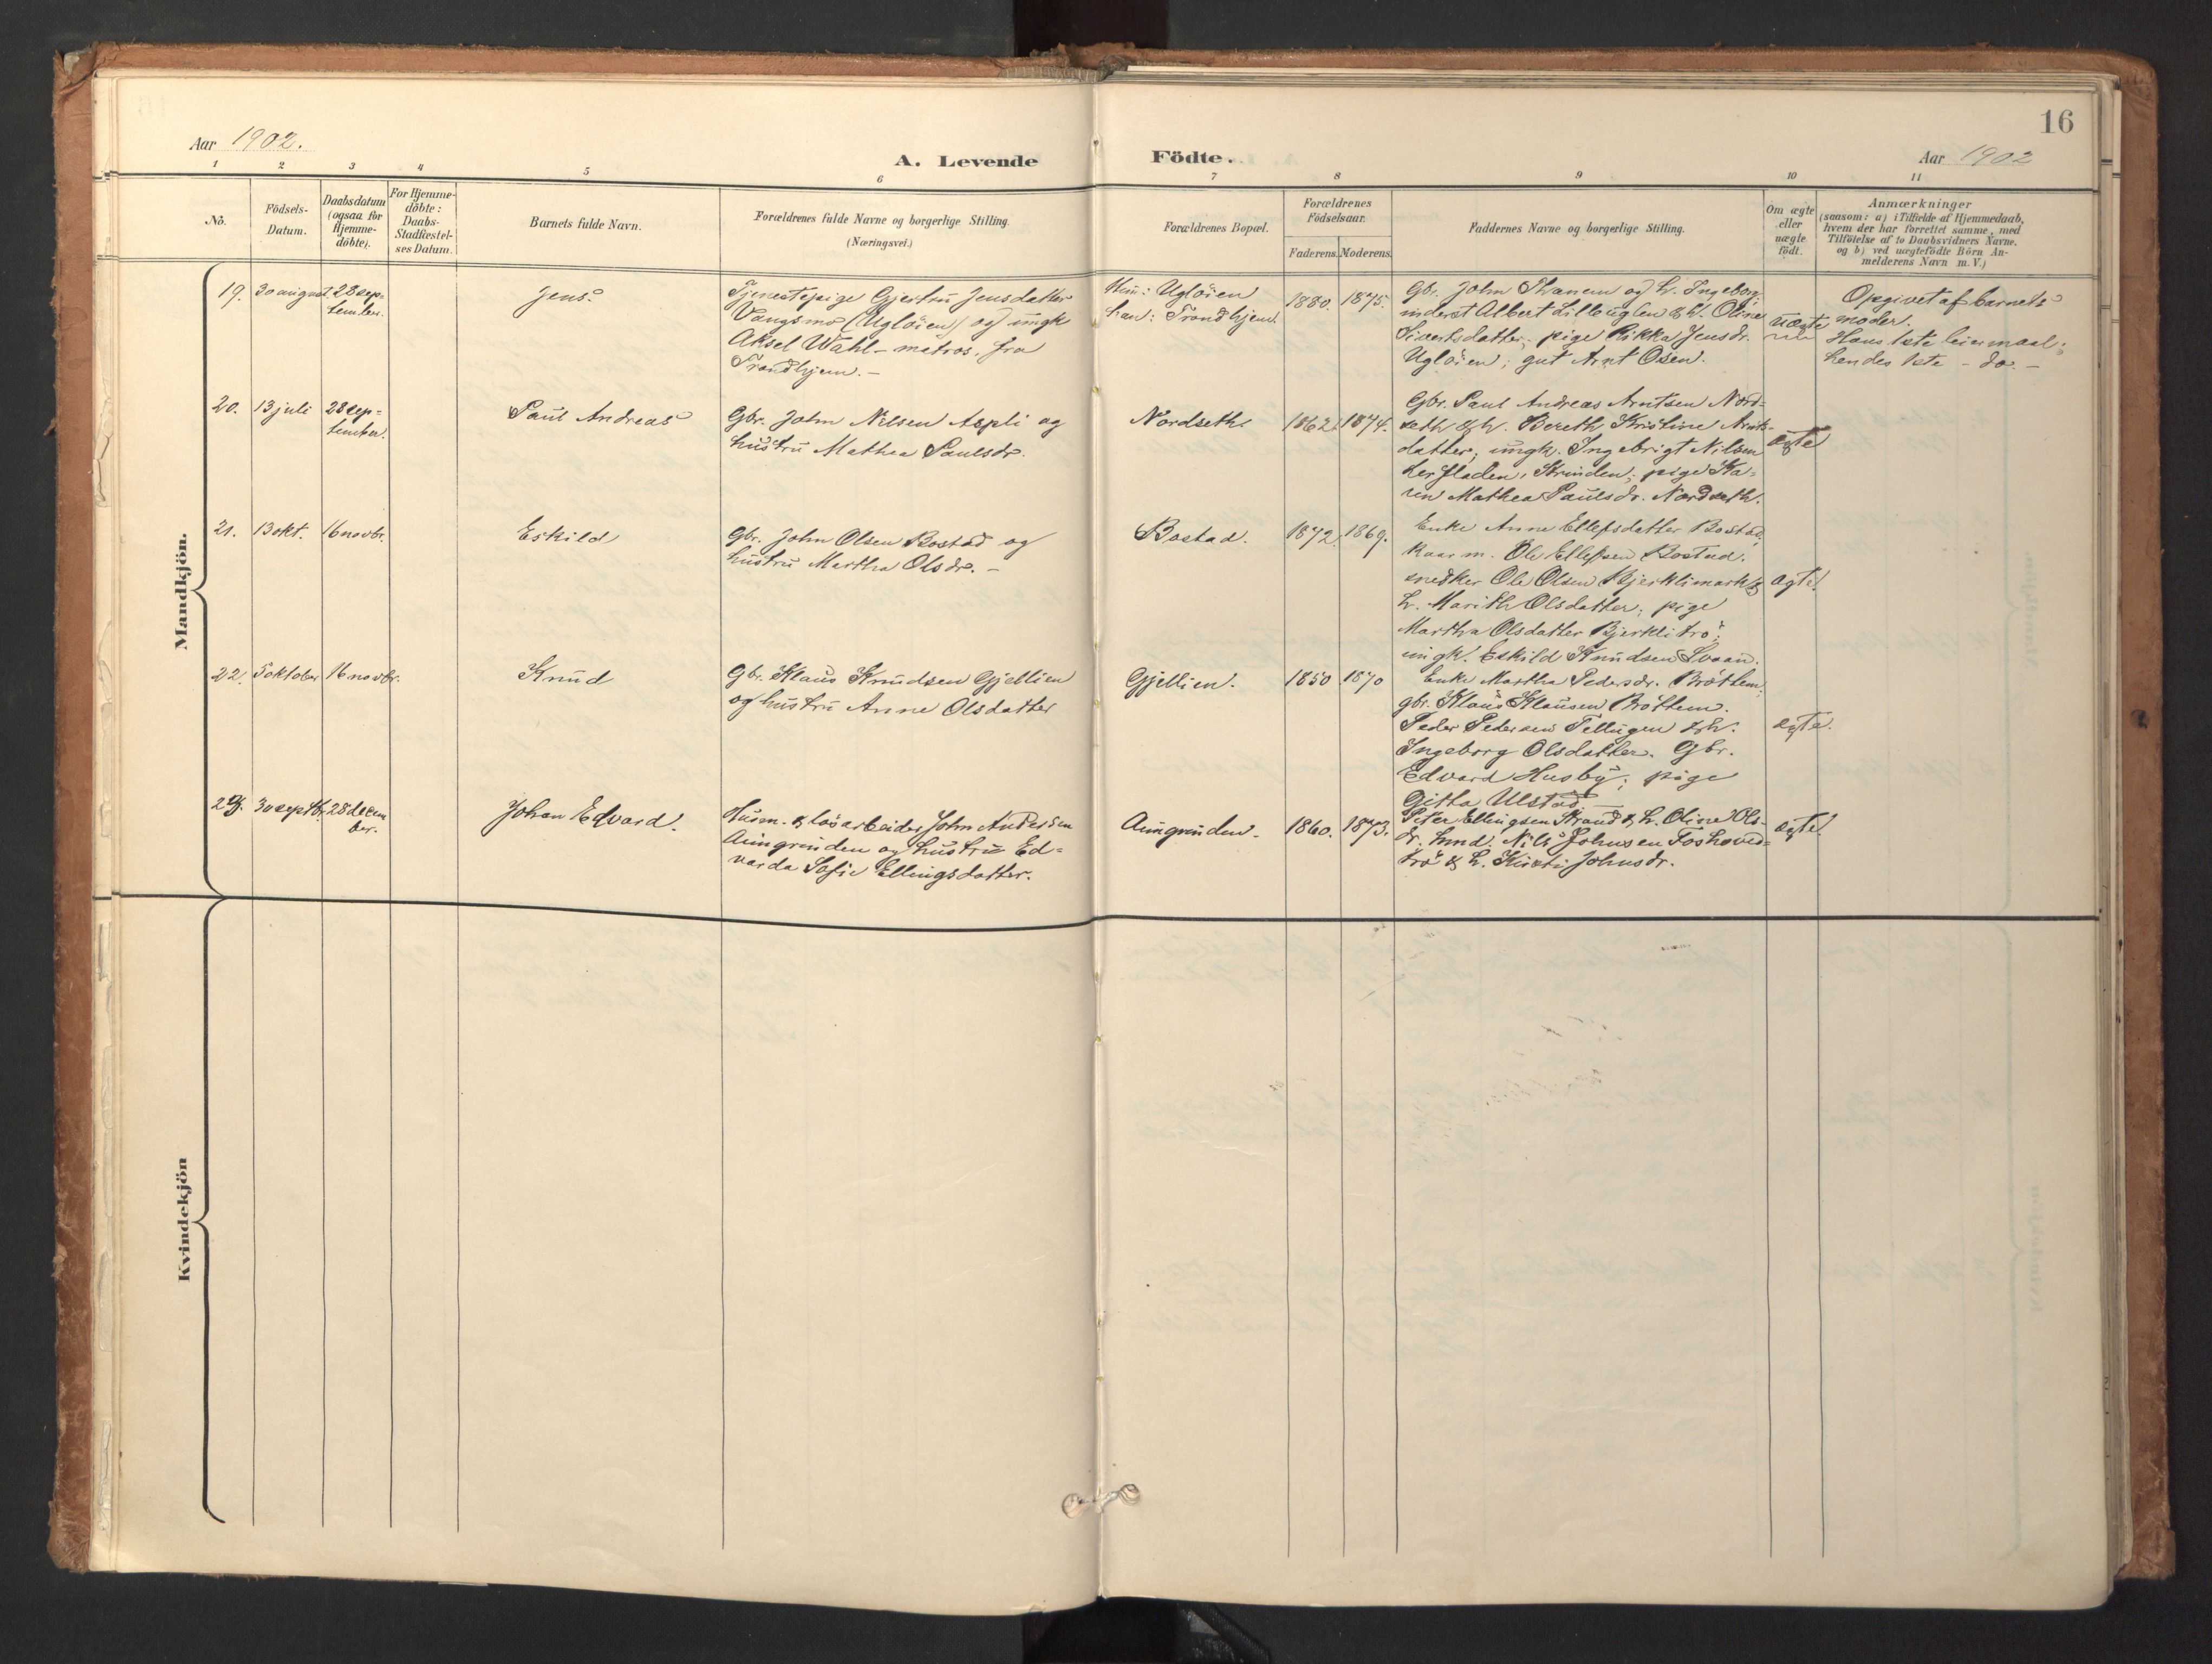 16
Aar 1902.
A. Levende
Födte.
Aar 1902
1 2 3 4 5 6 7 8 9 10 11
No.
Födsels-
Datum.
Daabsdatum
(ogsaa for
Hjemme-
döbte).
For Hjemme-
döbte:
Daabs-
Stadfæstel-
ses Datum.
Barnets fulde Navn.
Forældrenes fulde Navne og borgerlige Stilling.
(Næringsvei.)
Forældrenes Bopæl.
Forældrenes
Födselsaar.
Faderens. Moderens.
Faddernes Navne og borgerlige Stilling.
Om ægte
eller
uægte
födt.
Anmærkninger
(saasom: a) i Tilfælde af Hjemmedaab,
hvem der har forrettet samme, med
Tilföielse af to Daabsvidners Navne.
og b) ved uægtefödte Börn An-
melderens Navn m. V.)
Mandkjön.
19. 30 august 28 sep-
tember.
Jens
Tjenestepige Gjertru Jensdatter
Vangsmo (Ugløien) og ungk
Aksel Wahl - matros, fra
Trondhjem. -
Hun: Ugløien
han: Trondhjem.
1880. 1875.
Gbr. John Thanem og h. Ingeborg;
inderst Albert Lilleuglen & h. Oline
Sivertsdatter; pige Rikka Jensdr.
Ugløien; gut Arnt Osen.
uægte
Opgivet af barnets
moder.
Hans 1ste leiermaal;
hendes 1ste - do. -
20. 13 juli 28 sep-
tember.
Paul Andreas
Gbr. John Nilsen Aspli og
hustru Mathea Paulsdr.
Nordseth.
1862. 1874.
Gbr. Paul Andreas Arntsen Nord-
seth & h. Bereth Kristine Arnts-
datter; ungk. Ingebrigt Nilsen
Strinden; pige Ka-
ren Mathea Paulsdr. Nordseth.
ægte
21. 13 okt. 16 novbr.
Eskild
Gbr. John Olsen Bostad og
hustru Martha Olsdr. -
Bostad.
1872. 1869.
Enke Anne Ellefsdatter Bostad,
kaarm. Ole Ellefsen Bostad.
snedker Ole Olsen Bjerklimark &
h. Marith Olsdatter; pige
Martha Olsdatter Bjerklitrø;
ungk. Eskild Knudsen Svaan.
ægte.
22. 5 oktober 16 novbr.
Knud
Gbr. Klaus Knudsen Gjellien
og hustru Anne Olsdatter
Gjellien.
1850 1870
Enke Martha Pedersdr. Brøttem;
gbr. Klaus Klausen Brøttem.
Peder Pedersen Tellugen & h.
Ingeborg Olsdatter. Gbr.
Edvard Husby; pige
Gitta Ulstad
ægte.
23. 30 septbr. 28 decem
ber.
Johan Edvard.
Husm. & løsarbeider John Andersen
Aungrinden og hustru Ed-
varda Sofie Ellingsdatter.
Aungrinden.
1860. 1873.
Peter Ellingsen Strand & h. Oline Ols-
dr. hmd. Nils Johnsen Foshoved-
trø & h. Kirsti Johnsdr.
ægte.
Kvindekjön